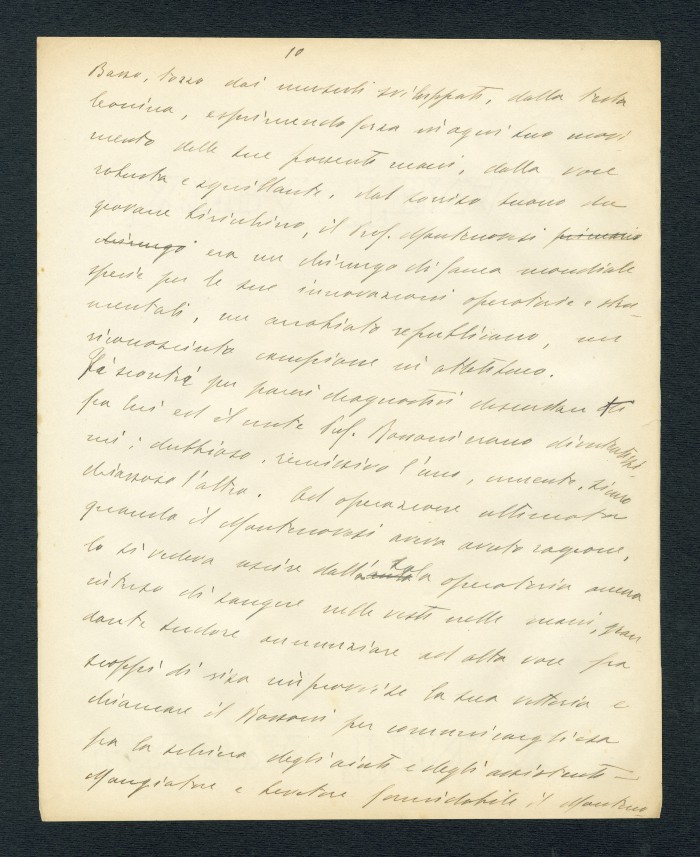 10
Basso, tozzo dai muscoli sviluppati, dalla testa
leonina, esprimendo forza in ogni suo movi
mento delle sue possenti mani, dalla voce
robusta e squillante, dal sorriso buono da
giovane birichino, il Prof. Montenovesi primario
chirurgo era un chirurgo di fama mondiale
specie per le sue innovazioni operatorie e stru
mentali, un arrabbiato repubblicano, un
riconosciuto campione in atletismo.
per pareri diagnostici discordanti
fra lui ed il mite Prof. Rossoni erano
mi: dubbioso, remissivo l'uno, irruento, sicuro
chiassoso l'altro. Ad operazione ultimata
quando il Montenovesi aveva avuto ragione,
lo si vedeva uscire dalla sala operatoria ancora
intriso di sangue nelle vesti nelle mani, gron
dante sudore annunziare ad alta voce fra
scoppi di risa improvvise la sua vittoria e
chiamare il Rossoni per comunicargliela
fra la schiera degli aiuti e degli assistenti
Mangiatore e bevitore formidabile il Monteno